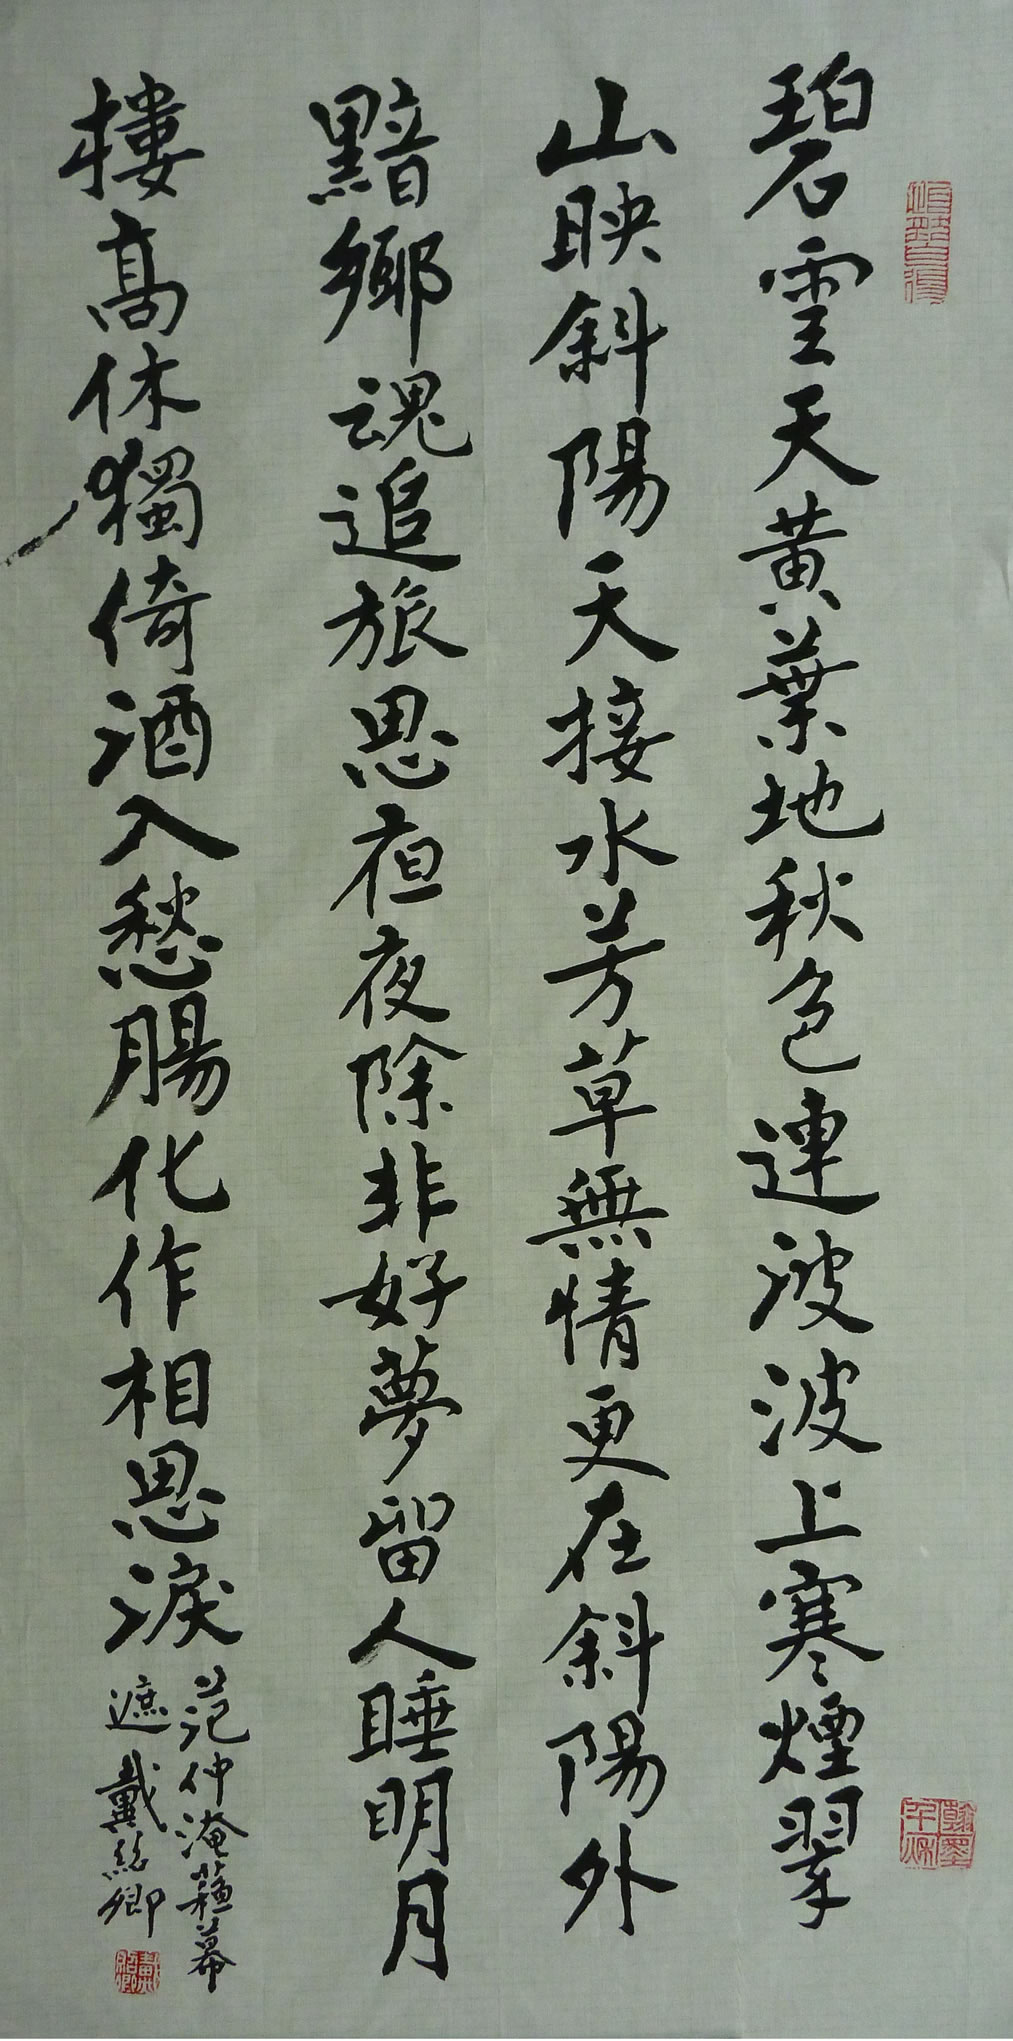 碧雲天黄葉地秋色連波波上寒煙翠
山映斜陽天接水芳草無情更在斜陽外
黯鄉魂追旅思夜夜除非好夢留人睡明月
樓高休獨倚酒入愁腸化作相思淚
范仲淹蘇幕
遮 戴紹卿
戴紹卿